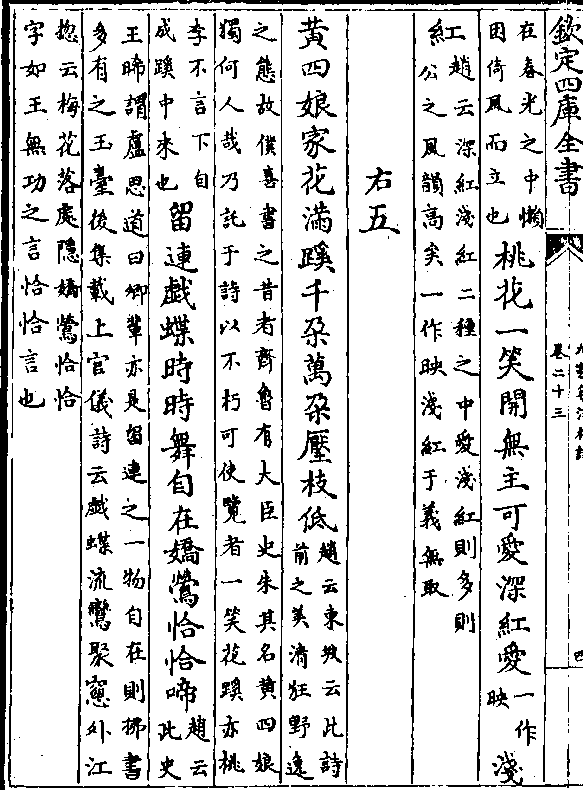 欽定四庫全書
卷二十三
四
在春光之中懶
困倚風而立也
桃花一笑開無主可愛深紅愛
一作
映
淺
紅趙云深紅淺紅二種之中愛淺紅則多則
紅公之風韻高矣一作映淺紅于義無取
右五
黄四娘家花滿蹊千朶萬朶壓枝低
趙云東坡云此詩
前之美清狂野逸
之態故僕喜書之昔者齊魯有大臣史失其名黄四娘
獨何人哉乃託于詩以不朽可使覽者一笑花蹊亦桃
李不言下自
成蹊中來也
留連戯蝶時時舞自在嬌鶯恰恰啼
趙云
此史
王晞謂盧思道曰卿輩亦是留連之一物自在則佛書
多有之玉臺後集載上官儀詩云戯蝶流鸎聚窻外江
揔云梅花落處隠嬌鶯恰恰
字如王無功之言恰恰言也